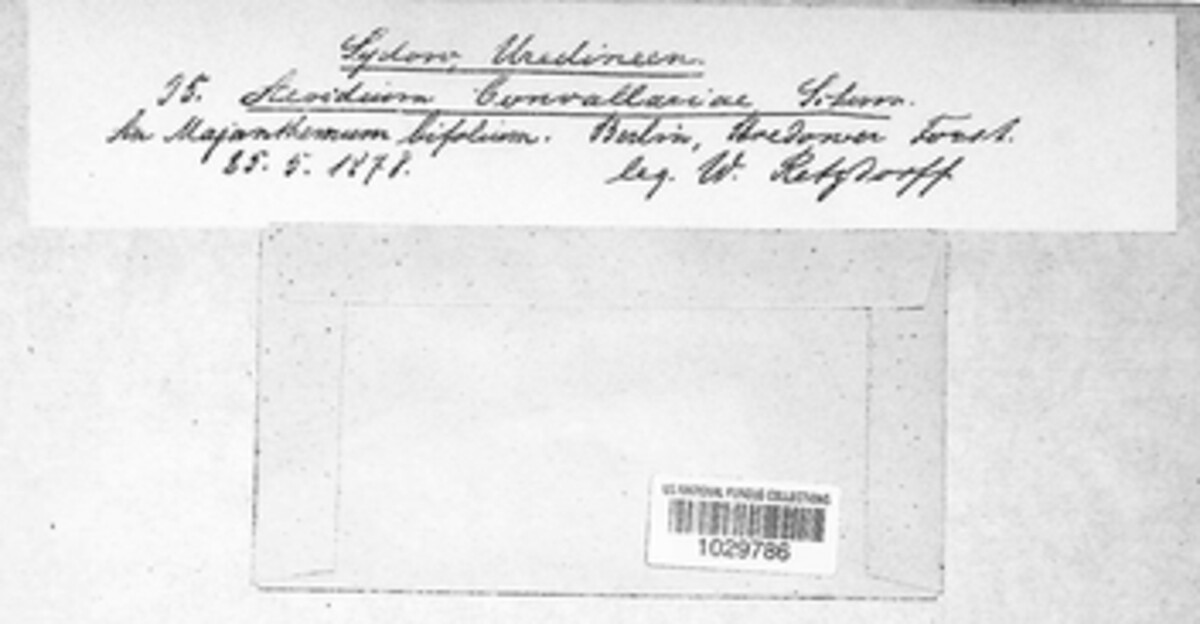 Sydow, Uredineen.
35. Aecidium Convallariae Schum.
An Majanthemum bifolium. Berlin, Bredower Forst.
25. 5. 1878. leg. W. Retzdorff
US NATIONAL FUNGUS COLLECTIONS
1029786